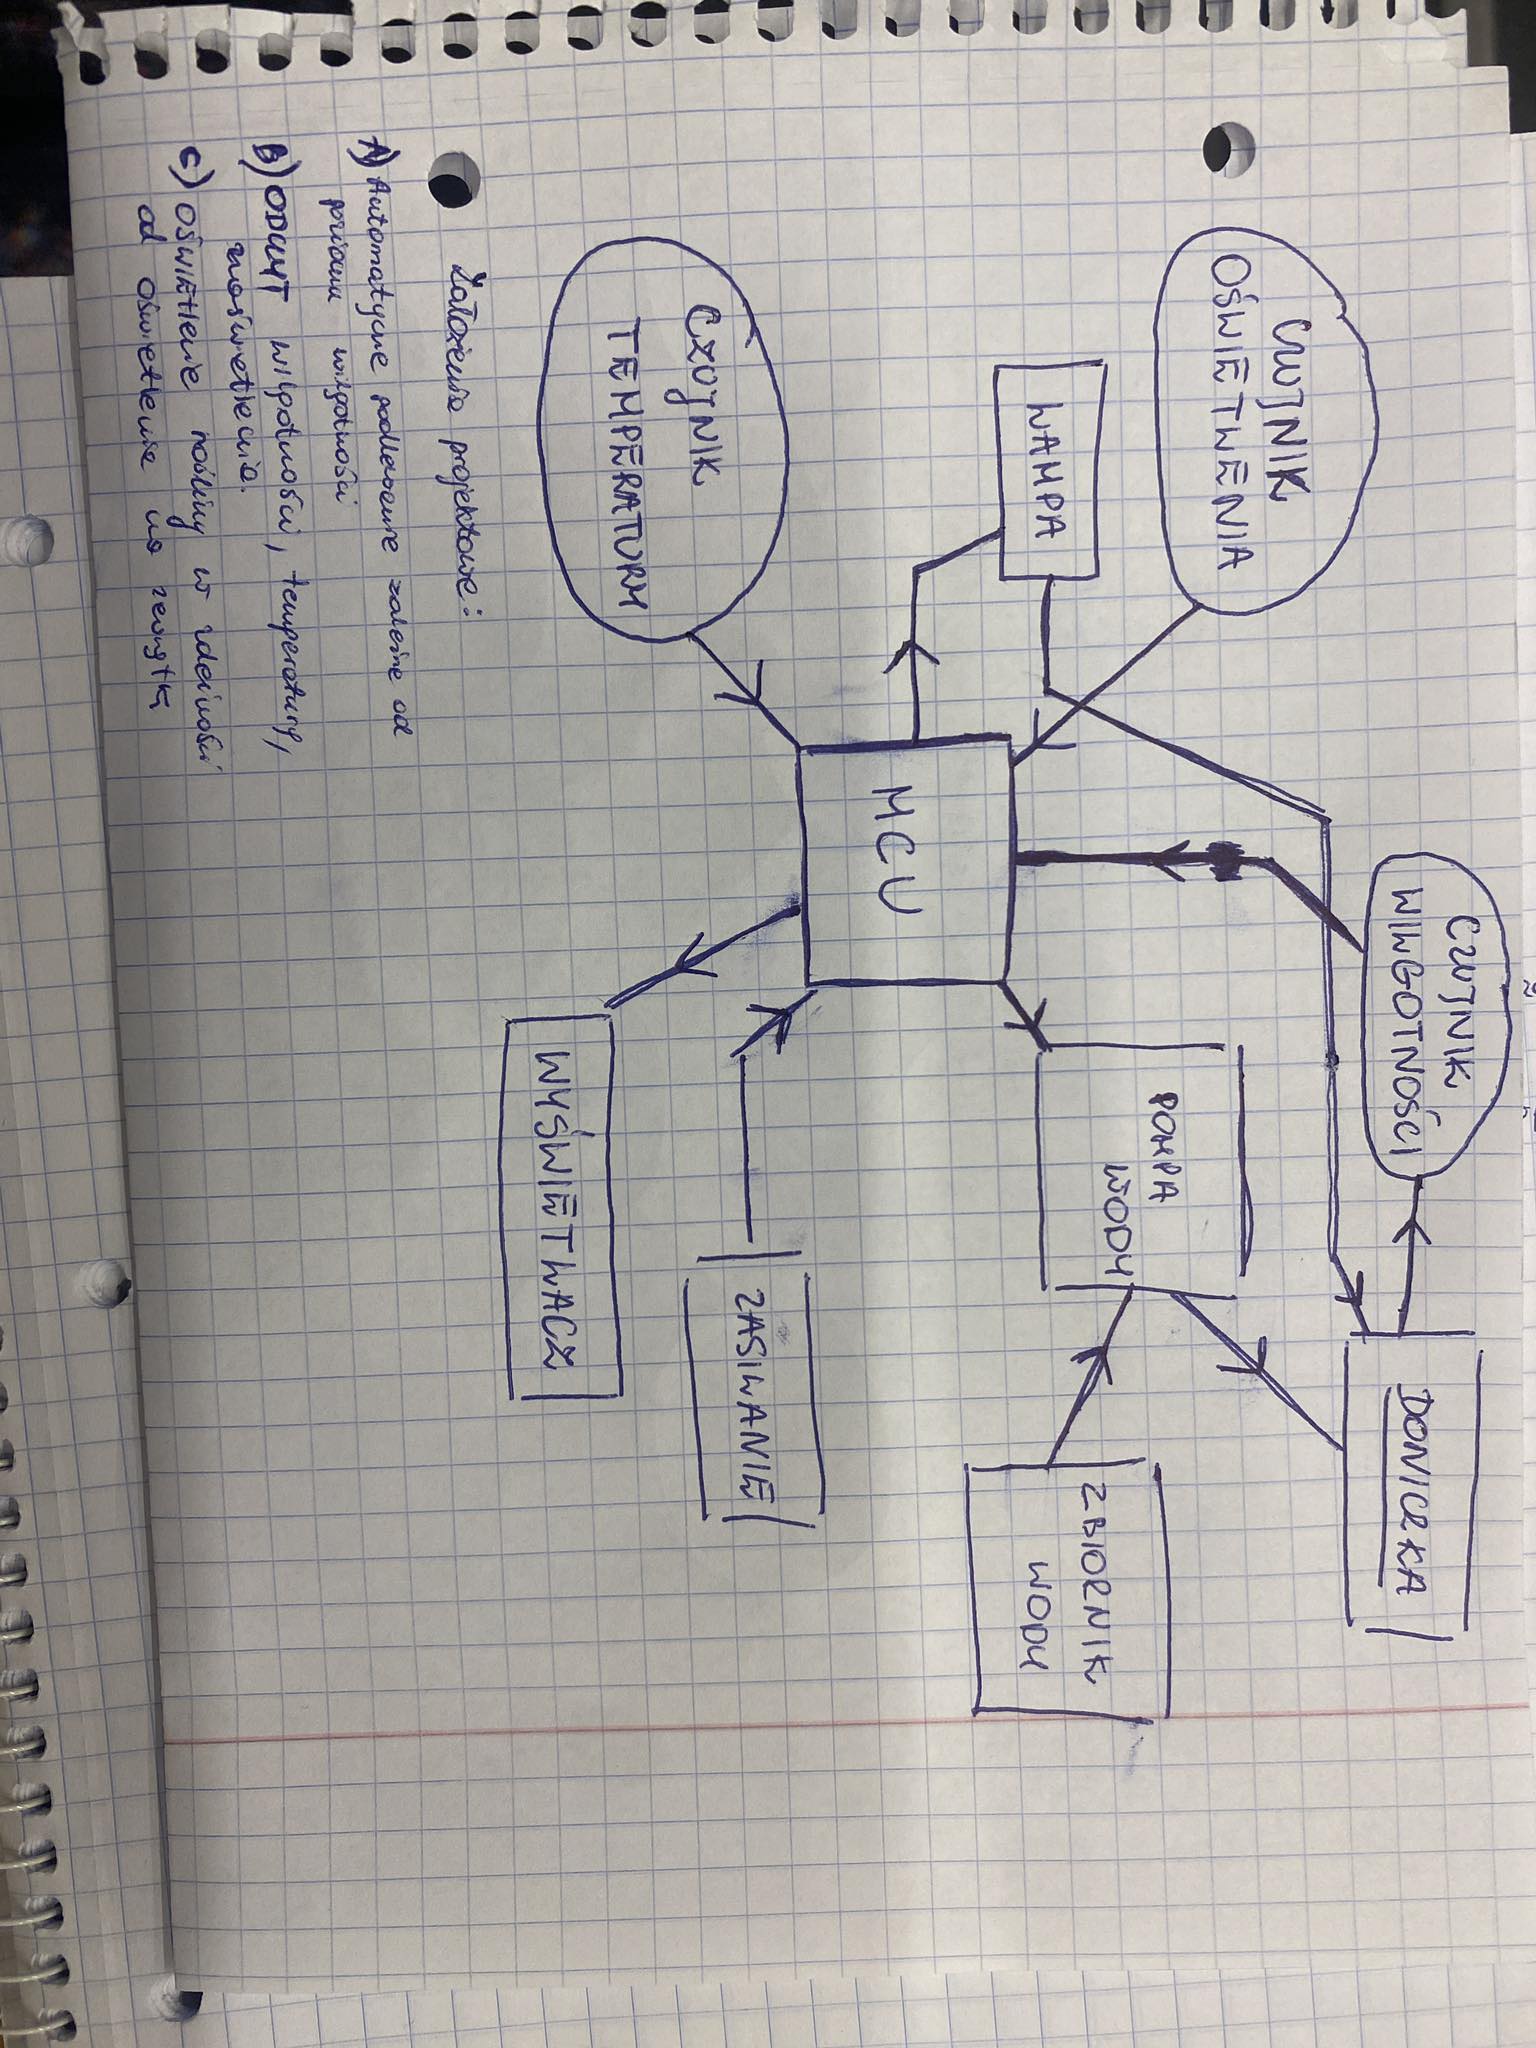 CZUJNIK
OŚWIETLENIA
LAMPA
CZUJNIK
TEMPERATURY
CZUJNIK
WILGOTNOŚCI
MCU
POMPA
WODY
DONICZKA
ZBIORNIK
WODY
ZASILANIE
WYŚWIETLACZ
Założenia projektowe:
A) Automatyczne podlewanie zależne od
poziomu wilgotności
B) ODCZYT wilgotności, temperatury,
naświetlenia.
C) OŚWIETLENIE rośliny w zależności
od oświetlenia na zewnątrz